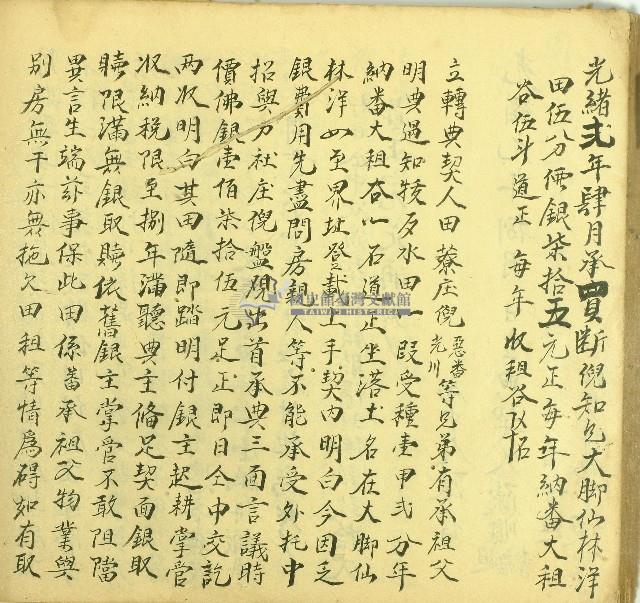 光緒弍年肆月承買斷倪知乞大脚仙林洋
田伍八分価銀柒拾五元正每年納番大租
谷伍斗道正 每年收租谷
立轉典契人田蔡庄倪惡番光川等兄弟有承祖父
明典過知犮歹水田一叚受種壹甲弍分年
納番大租谷 石道正坐落土名在大脚仙
林洋 至界址登載上手契內明白今因乏
銀費用先盡問房親人等不能承受外托中
招與 社庄倪盤 出首承典三面言議時
價佛銀壹佰柒拾伍元足正即日仝中交訖
两收明白其田隨即踏明付銀主起耕掌管
收納稅限至捌年滿聽典主俻足契面銀取
贖限滿無銀取贖依舊銀主掌管不敢阻擋
異言生端訟事保此田係蕃承祖父物業與
别房無干亦無拖欠田租等情為碍如有取
國史館臺灣文獻館
TAIWAN HISTORICA